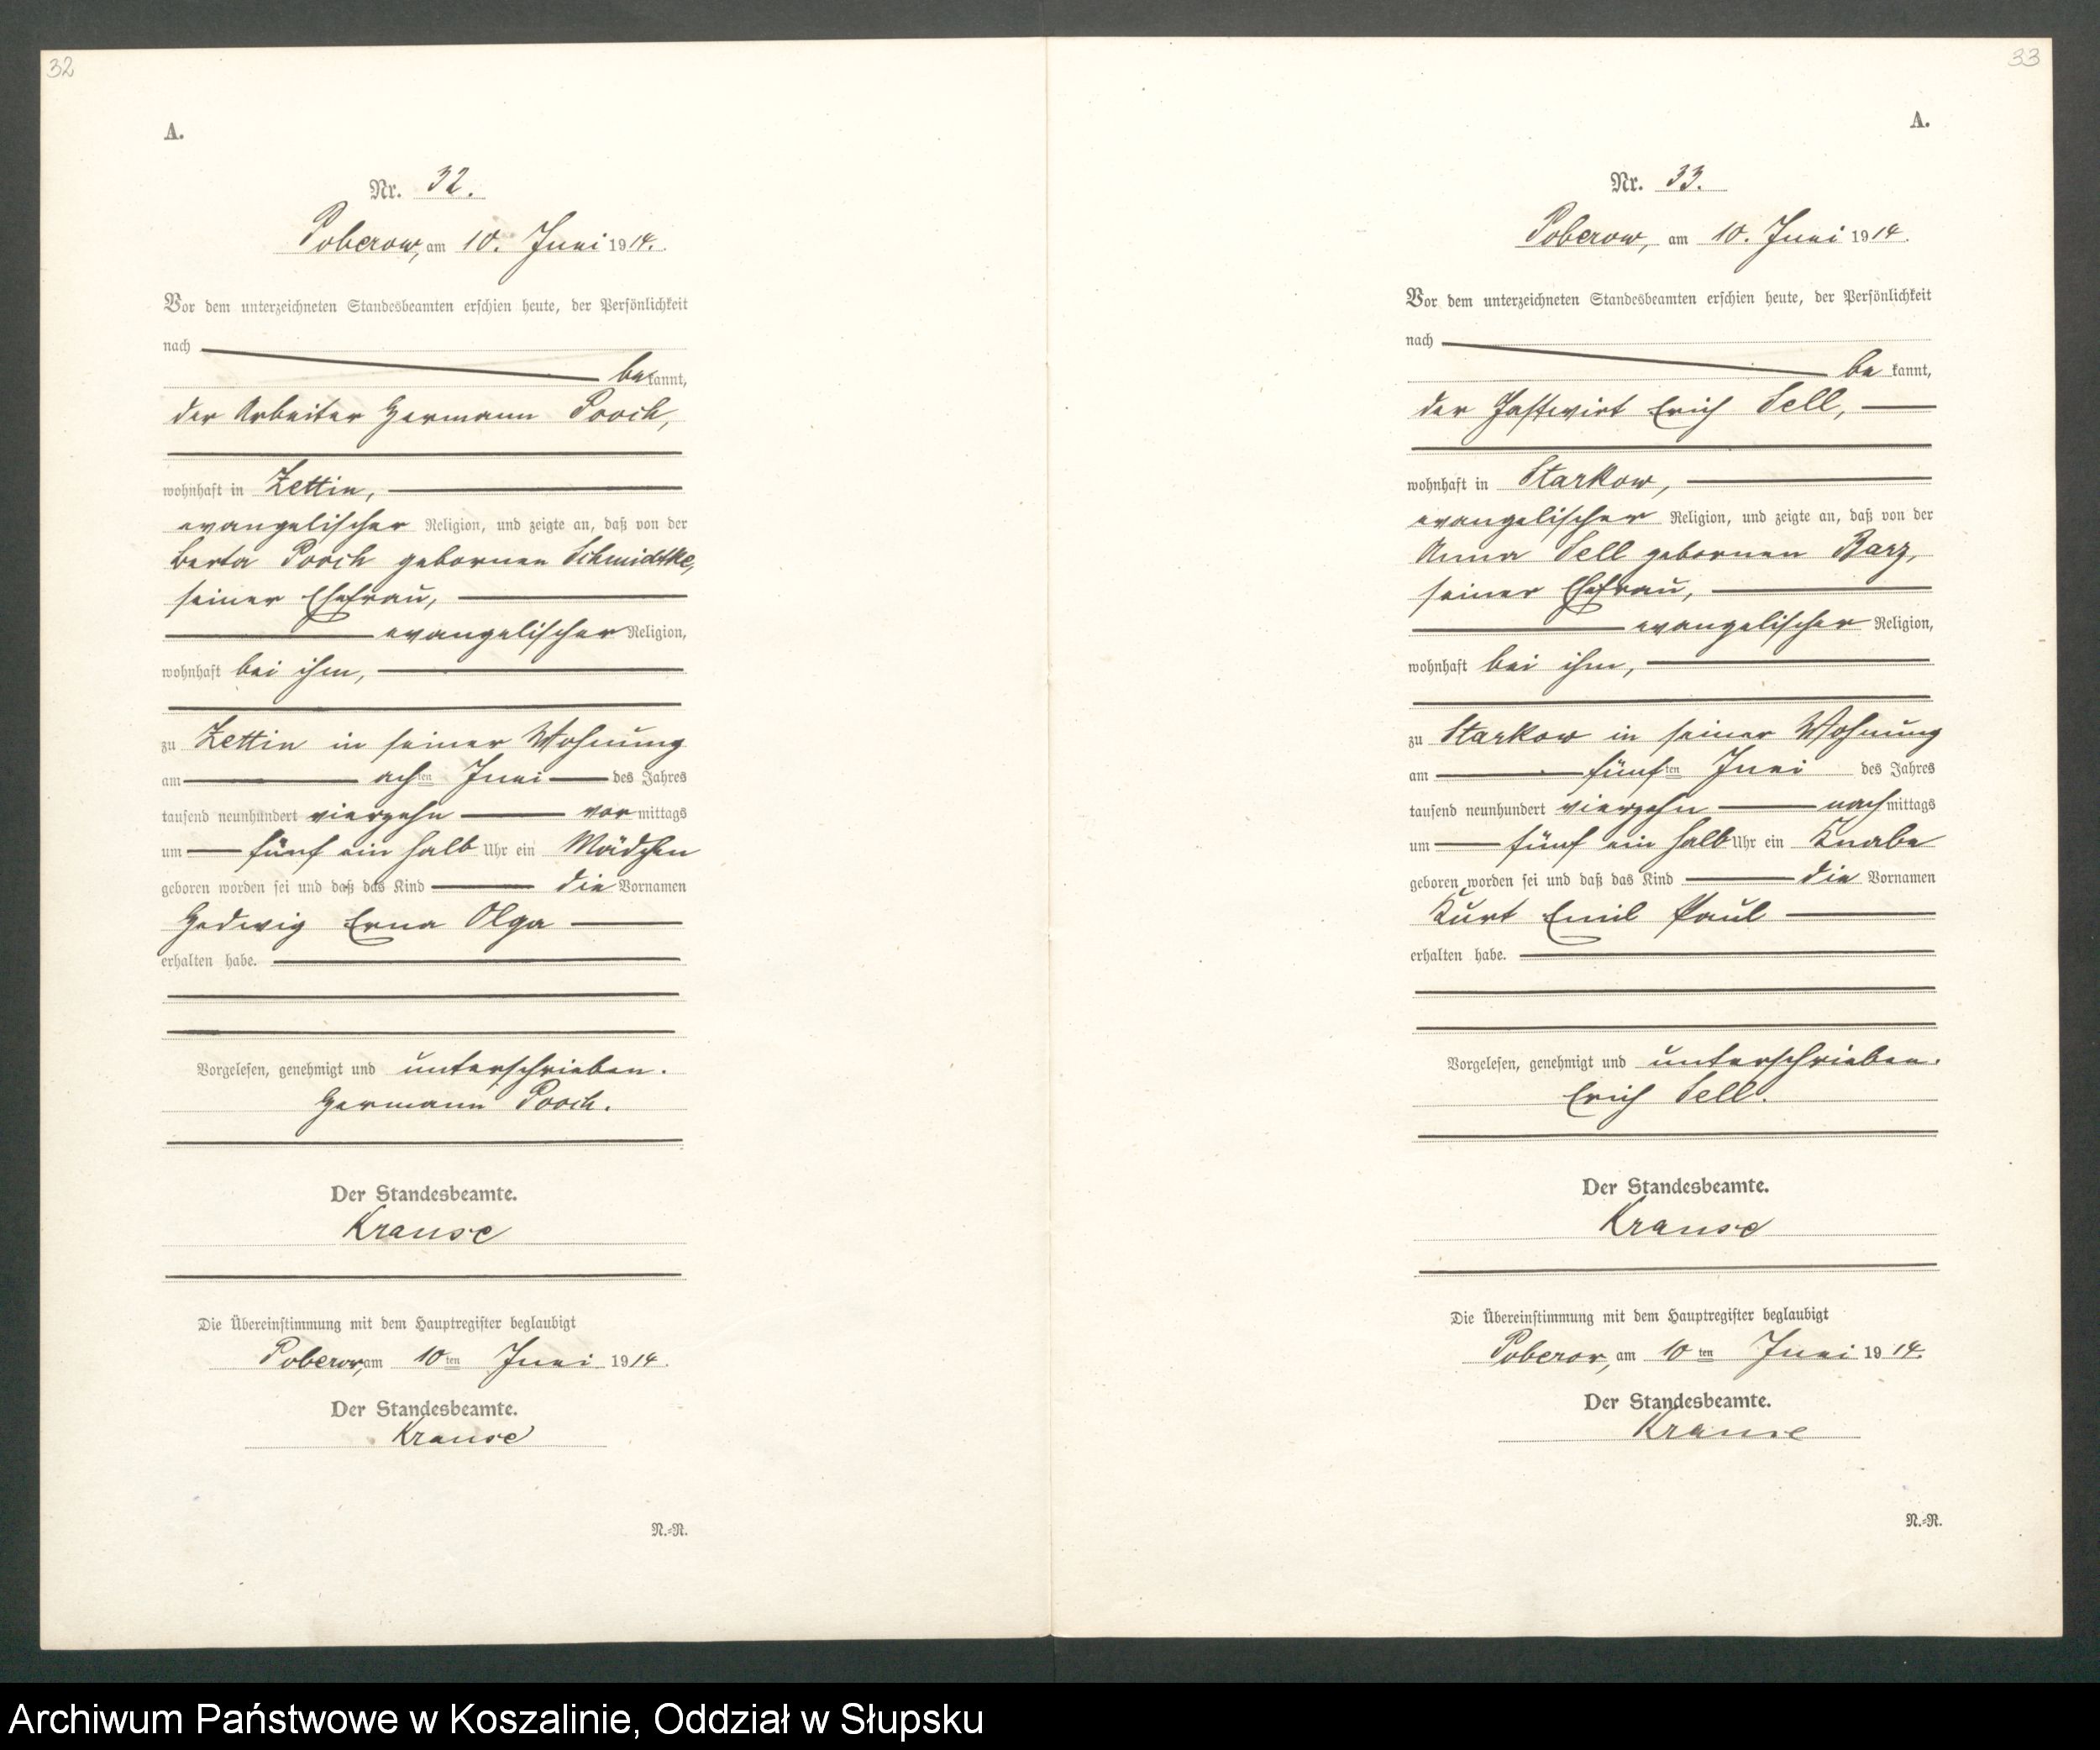 32
A.
Nr. 32.
Poberow, am 10. Juni 1914.
Vor dem unterzeichneten Standesbeamten erschien heute, der Persönlichkeit
nach
bekannt,
der Arbeiter Hermann Pooch,
wohnhaft in Zettin,
evangelischer Religion, und zeigte an, daß von der
Berta Pooch gebornen Schmidtke,
seiner Ehefrau,
evangelischer Religion,
wohnhaft bei ihm,
zu Zettin in seiner Wohnung
am achten Juni des Jahres
tausend neunhundert vierzehn vormittags
um fünf ein halb Uhr ein Mädchen
geboren worden sei und daß das Kind die Vornamen
Hedwig Erna Olga
erhalten habe.
Vorgelesen, genehmigt und unterschrieben.
Hermann Pooch.
Der Standesbeamte.
Krause
Die Übereinstimmung mit dem Hauptregister beglaubigt
Poberow, am 10ten Juni 1914.
Der Standesbeamte.
Krause
N.-R.
33
A.
Nr. 33.
Poberow, am 10. Juni 1914.
Vor dem unterzeichneten Standesbeamten erschien heute, der Persönlichkeit
nach
bekannt,
der Gastwirt Erich Sell,
wohnhaft in Starkow,
evangelischer Religion, und zeigte an, daß von der
Anna Sell gebornen Barz,
seiner Ehefrau,
evangelischer Religion,
wohnhaft bei ihm,
zu Starkow in seiner Wohnung
am fünften Juni des Jahres
tausend neunhundert vierzehn nachmittags
um fünf ein halb Uhr ein Knabe
geboren worden sei und daß das Kind die Vornamen
Kurt Emil Paul
erhalten habe.
Vorgelesen, genehmigt und unterschrieben.
Erich Sell.
Der Standesbeamte.
Krause
Die Übereinstimmung mit dem Hauptregister beglaubigt
Poberow, am 10ten Juni 1914.
Der Standesbeamte.
Krause
N.-R.
Archiwum Państwowe w Koszalinie, Oddział w Słupsku